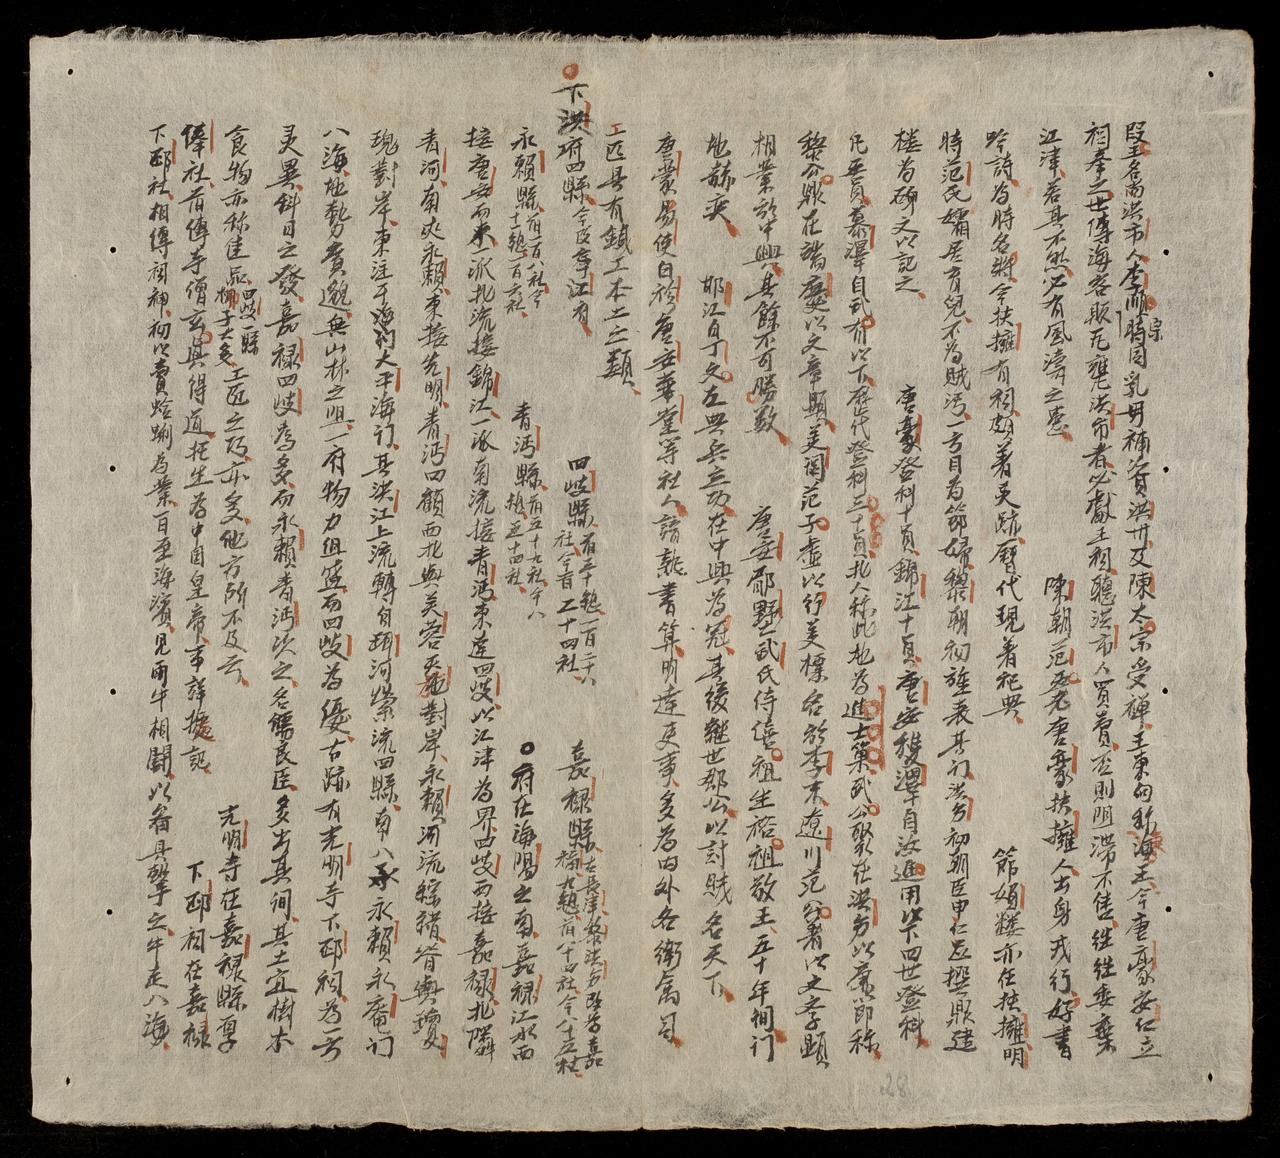 段王名尚洪市人李順宗時同乳母補資洪州及陳太宗受禪王東向称海王今唐豪安仁立
祠奉之世傳海客販瓦甕洪市者必獻王祠聽洪市人買賣否則阻滞不售往往委棄
江津若其不然必有風濤之患　陳朝范五老唐豪扶擁人出身戎行好書
吟詩為時名將今扶擁有祠頗著灵跡曆代現著祀典　節婦樓亦在扶擁明
時范氏孀居育兒不為賊汚一方目為節婦黎朝初旌表其门洪方初朝臣申仁忠撰鼎建
楼為碑文以記之　唐豪登科十員錦江十員唐安穫澤自汝進用以下四世登科
凡五員慕澤自武有以下歷代登科三十員北人称此地為進士巢武公聚在洪方以亷節称
黎公鼎在端慶以文章顯美閣范子虚以行美標名於李末遼川范公著以文字顯
相業於中興其餘不可勝数　唐安鄏野武氏侍僖祖生裕祖敬王五十年间门
地赫奕　邯江自丁文左典兵立功在中興為冠其後継世郡公以討賊名天下
唐豪易使白於唐安華堂等社人讀熟書算明達吏事多為内外各衙属司
工匠具有鍼工本土之類
下洪府四縣今改寧江有　四岐縣前三十総一百二十八社今首工十四社　嘉禄縣古長津黎洪方改為嘉福九総前八十四社今八十五社
永賴縣前一百八社今十一総一百六社　青沔縣前五十九社今八総五十四社　府在海陽之南嘉禄江水西
接唐安而來一派北流接錦江一派南流接青沔東達四岐以江津為界四岐西接嘉禄北隣
青河南夾永賴東接先明青沔四顧西北與芙蓉天施對岸永賴河流綜錯脊與瓊
瑰對岸東注于海蓟大平海门其洪江上流轉自珥河縈流四縣南入承永賴永庵门
入海地勢賣邈無山林之阻一府物力俎篮而四岐為優古跡有光明寺下邳祠為一方
灵異科目之發嘉禄四岐為多而永賴青沔次之名儒良臣多出其间其土宜樹木
食物亦称佳品四岐一縣椰子大多工匠之巧亦多他方所不及云　光明寺在嘉禄縣厚
俸社前傳寺僧玄真得道托生為中国皇帝事詳摭記　下邳祠在嘉禄
下邳社相傳祠神初以賣蛤蜊為業一日至海濱見兩牛相鬪以着具擊之牛走入海